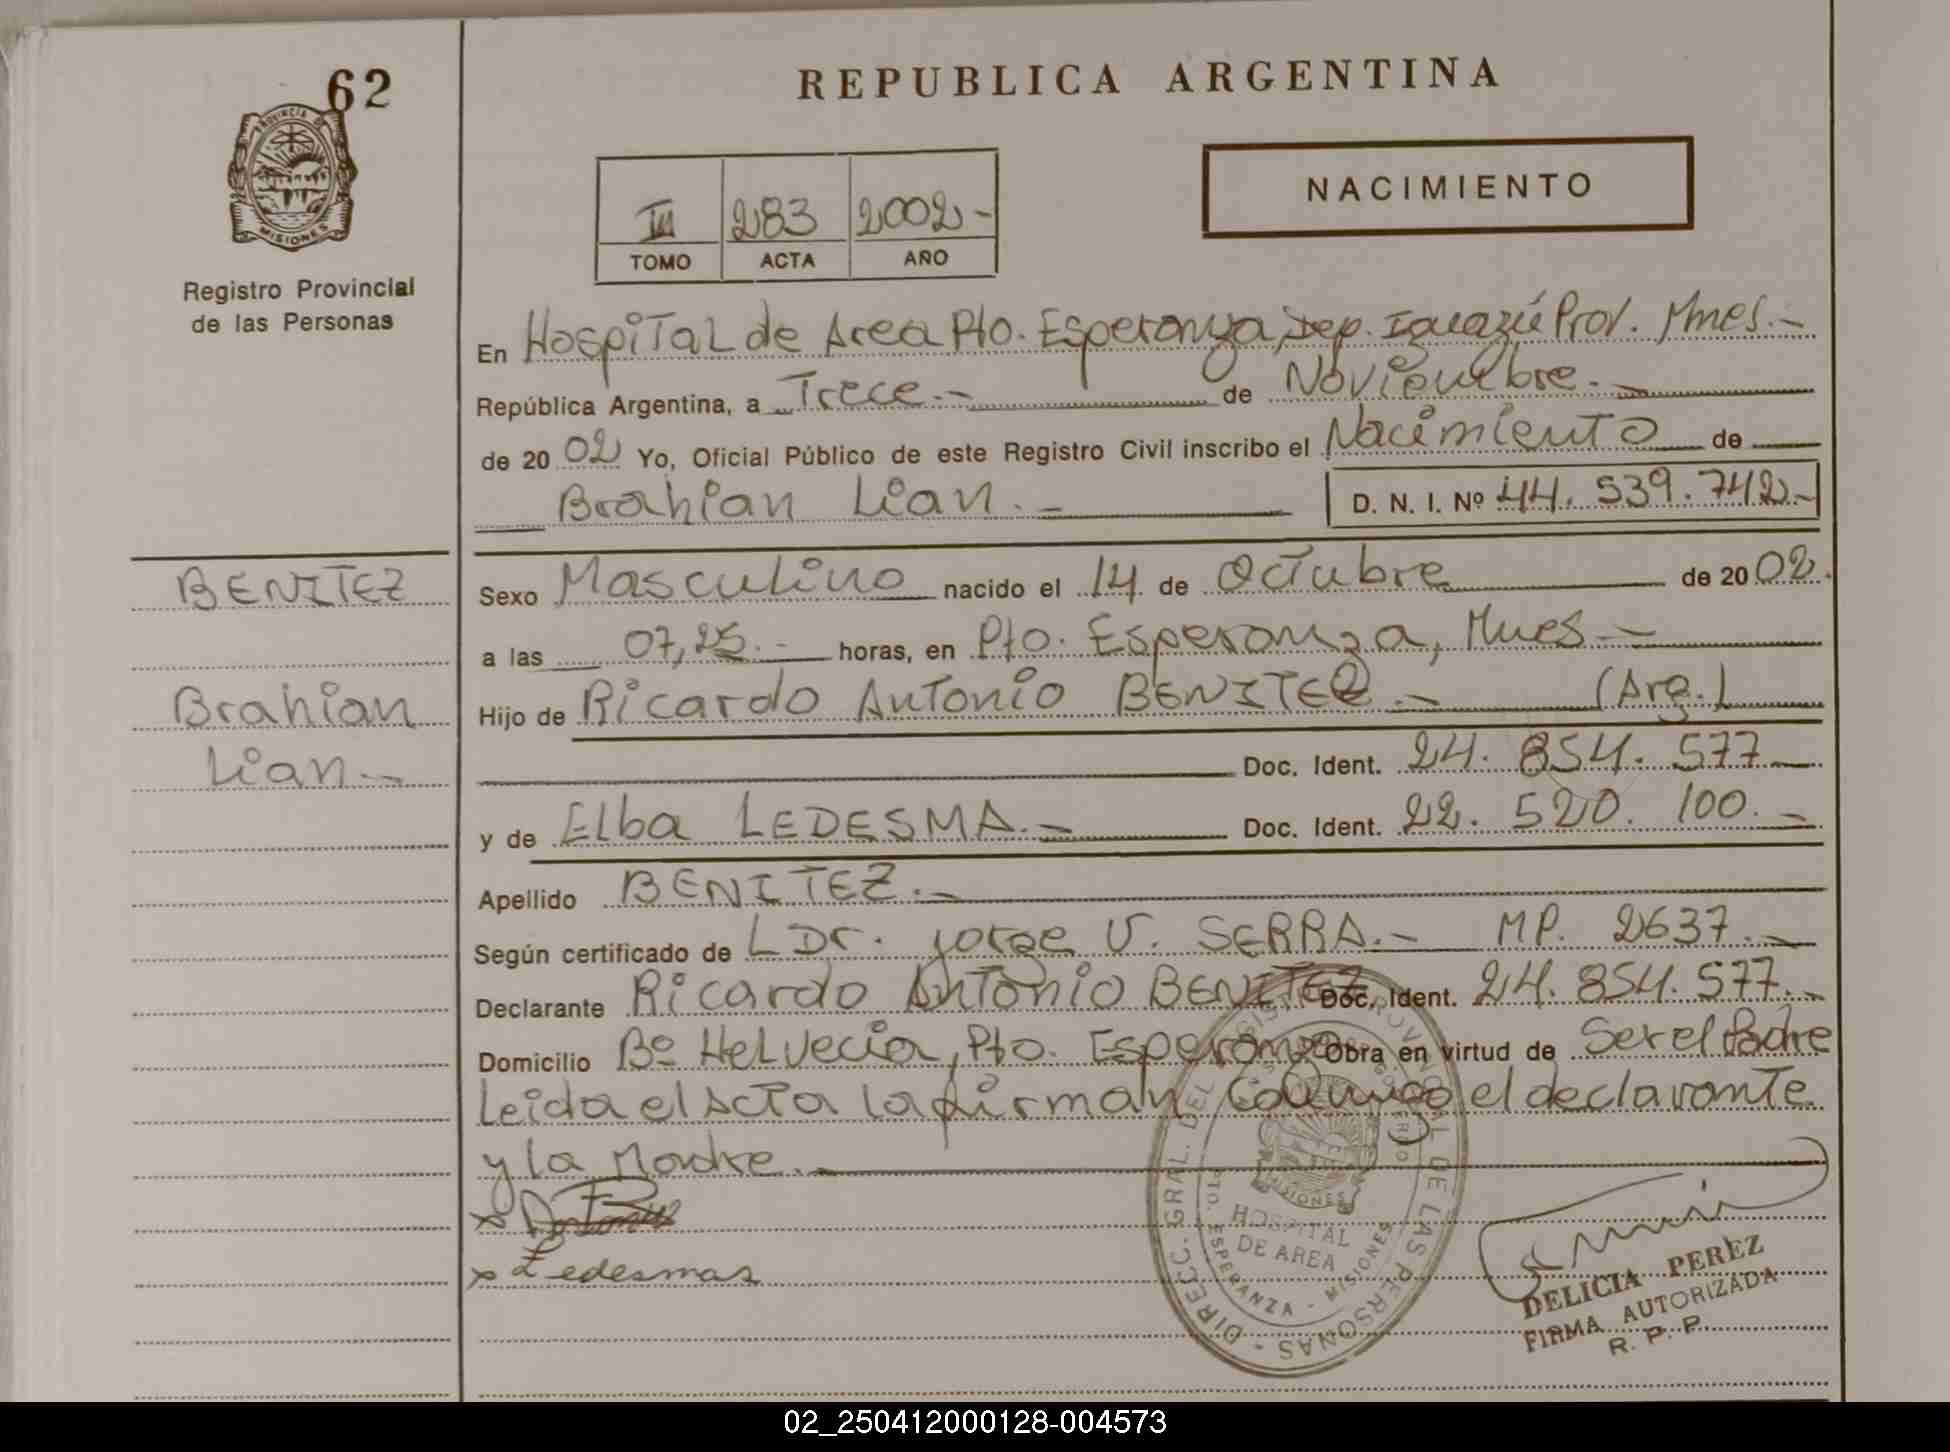 62
REPUBLICA ARGENTINA
PROVINCIA DE
MISIONES
Registro Provincial
de las Personas
III 283 2002-
TOMO ACTA AÑO
NACIMIENTO
En Hospital de Area Pto. Esperanza, Dep. Iguazú Prov. Mnes.-
República Argentina, a Trece.- de Noviembre.-
de 2002 Yo, Oficial Público de este Registro Civil inscribo el Nacimiento de
Brahian Lian.- D. N. I. Nº 44.539.742.-
BENITEZ
Brahian
Lian.-
Sexo Masculino nacido el 14 de Octubre de 2002.
a las 07,25.- horas, en Pto. Esperanza, Mnes.-
Hijo de Ricardo Antonio BENITEZ.- (Arg.)
Doc. Ident. 24.854.577
y de Elba LEDESMA.- Doc. Ident. 22.520.100.-
Apellido BENITEZ.-
Según certificado de Dr. Jorge V. SERRA.- MP. 2637.-
Declarante Ricardo Antonio BENITEZ Doc. Ident. 24.854.577.-
Domicilio Bº Helvecia, Pto. Esperanza Obra en virtud de Ser el Padre
Leida el Acta la firman Conmigo el declarante
y la Madre.-
x
x Ledesma
DIRECC. GRAL. DEL REGISTRO PROVINCIAL DE LAS PERSONAS
MISIONES
HOSPITAL
DE AREA
PTO. ESPERANZA - MISIONES
DELICIA PEREZ
FIRMA AUTORIZADA
R. P. P.
02_250412000128-004573